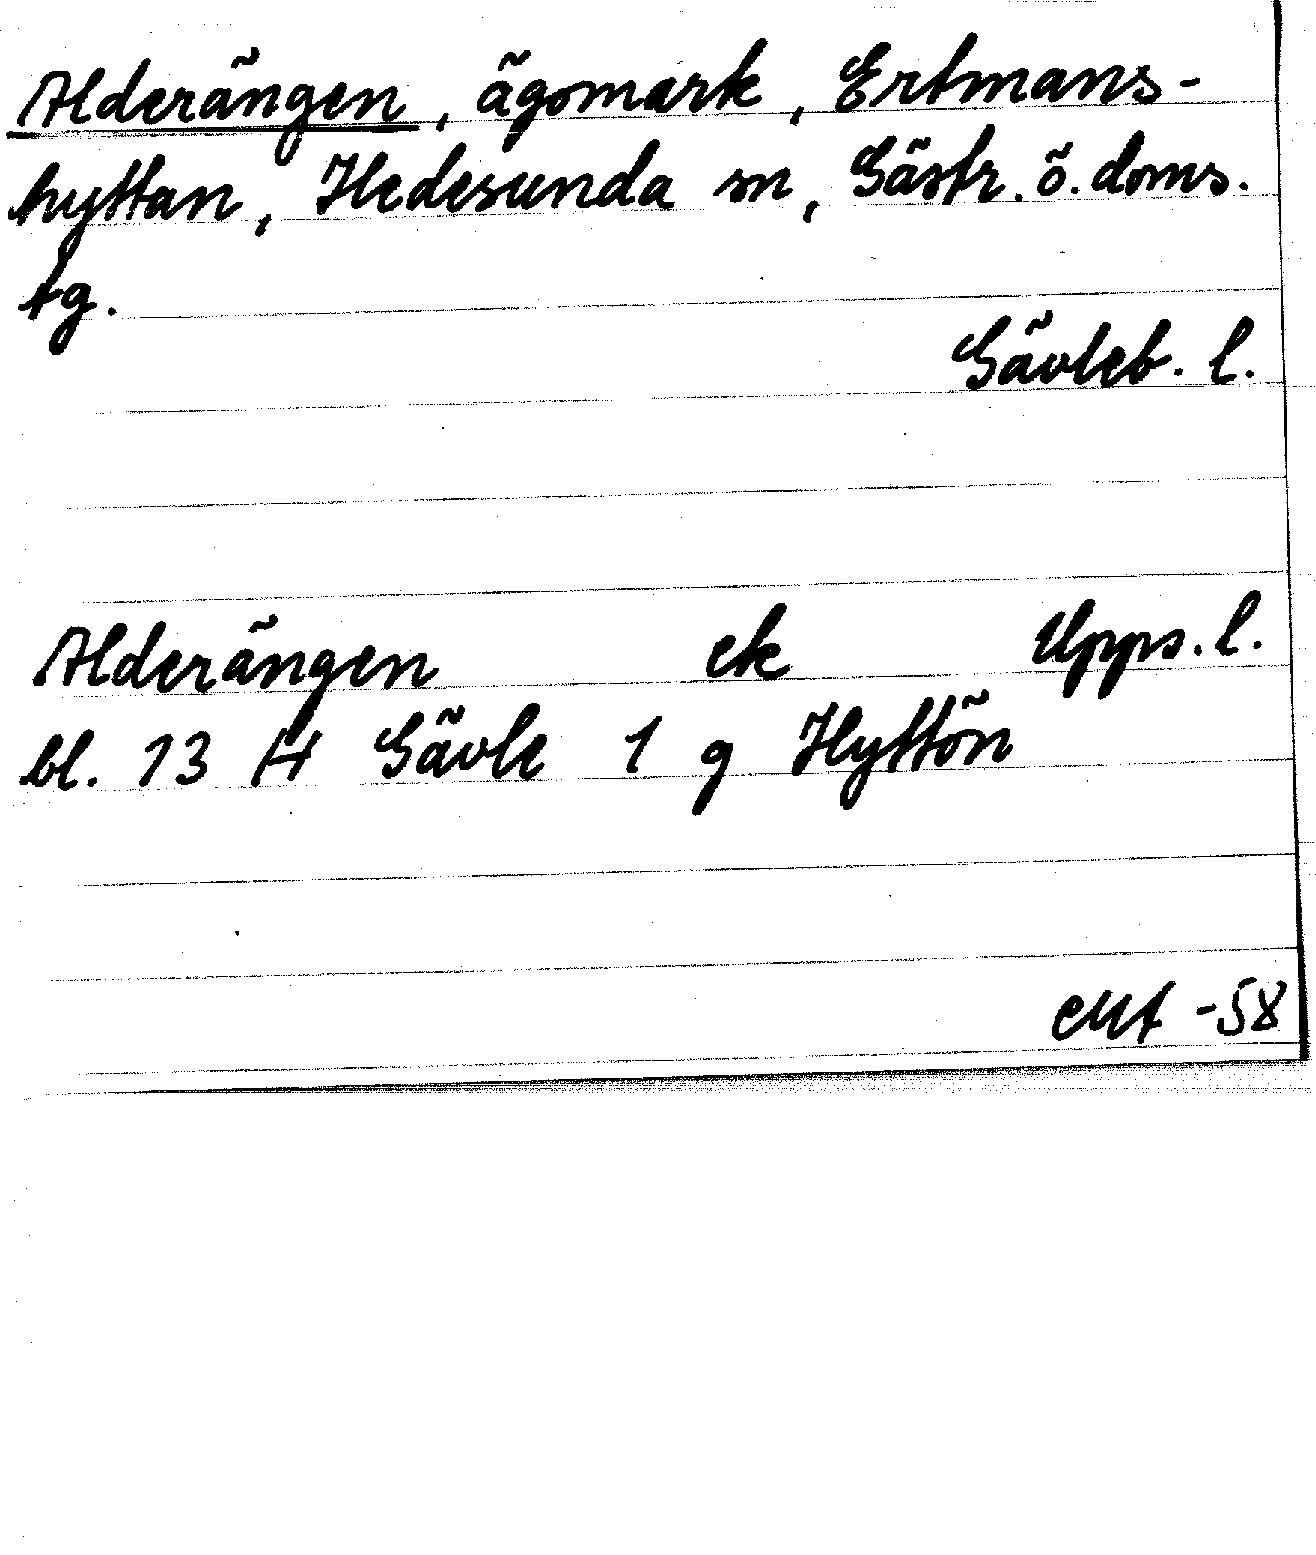 Alderängen, ägomark, Ertmans-
hyttan, Hedesunda sn, Gästr. ö. doms.
tg.
Gävleb. l.
Alderängen ek Upps. l.
bl. 13 H Gävle 1 g Hyttön
-58